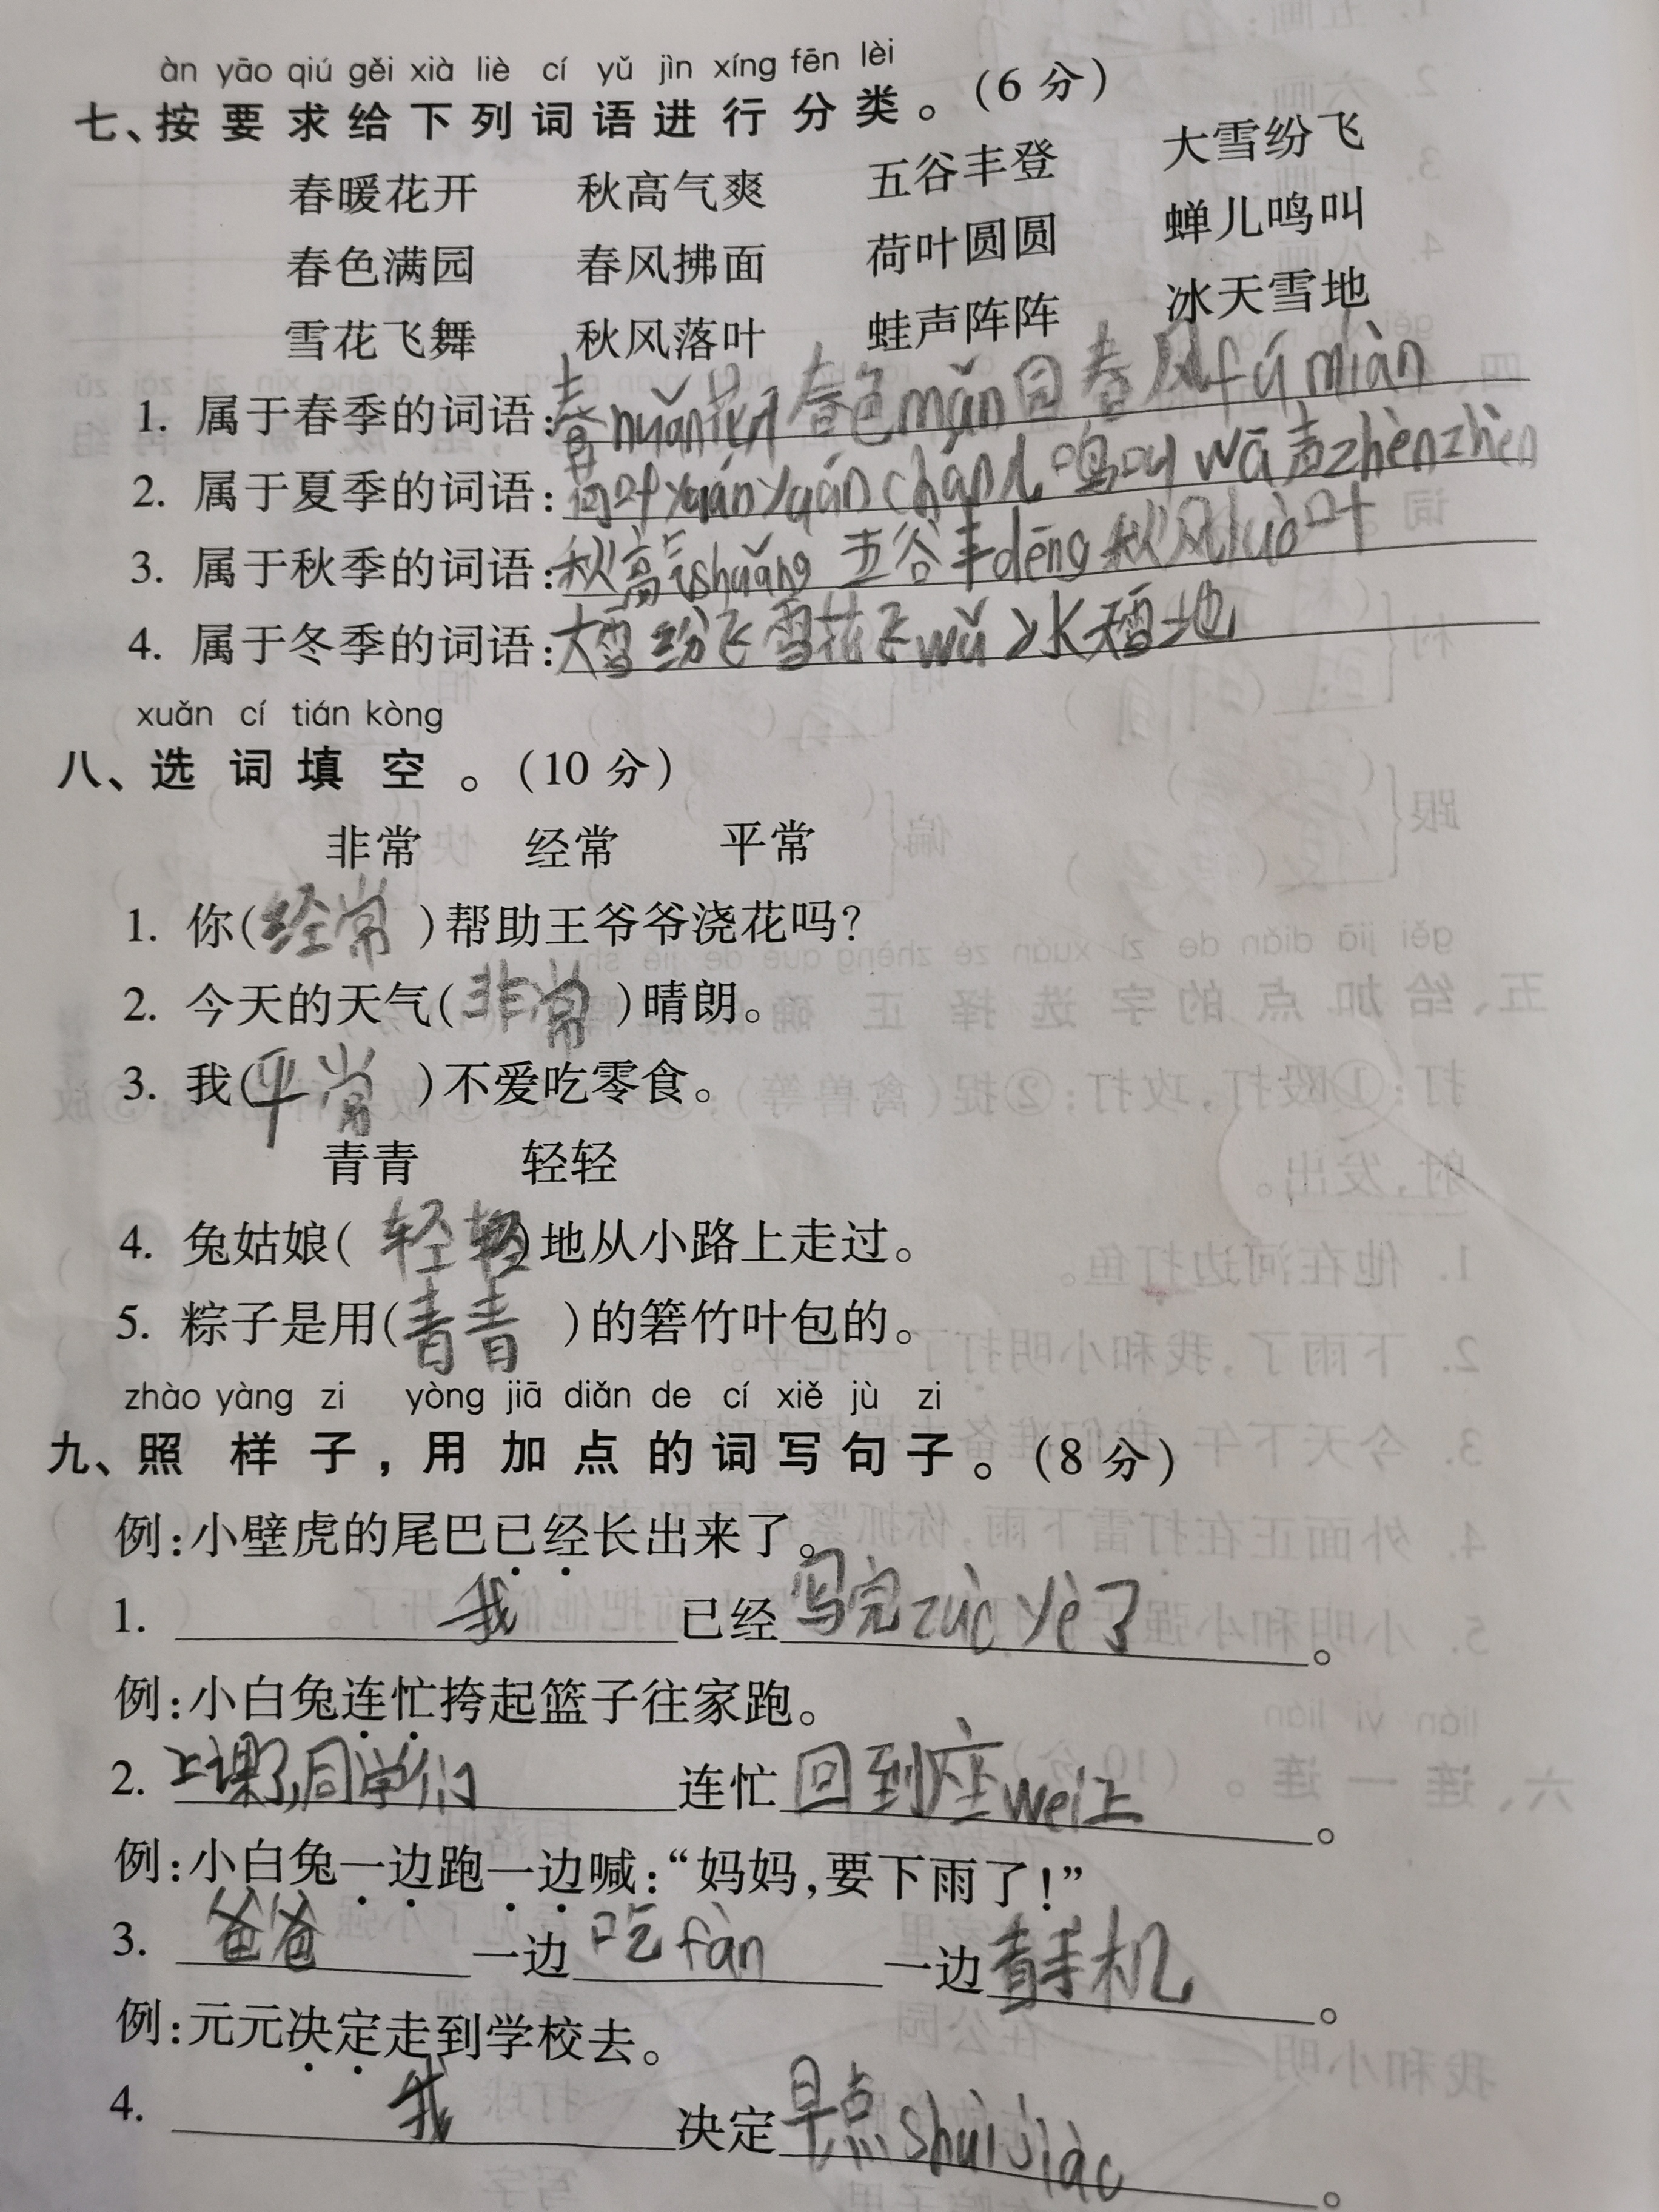 àn yāo qiú gěi xià liè cí yǔ jìn xíng fēn lèi
七、按要求给下列词语进行分类。(6分)
春暖花开 秋高气爽 五谷丰登 大雪纷飞
春色满园 春风拂面 荷叶圆圆 蝉儿鸣叫
雪花飞舞 秋风落叶 蛙声阵阵 冰天雪地
1. 属于春季的词语:春nuǎn花开春色mǎn园春风fú miàn
2. 属于夏季的词语:荷叶yuányuán chán儿鸣叫wā声zhènzhèn
3. 属于秋季的词语:秋高气shuǎng 五谷丰dēng秋风luò叶
4. 属于冬季的词语:大雪纷飞雪花飞wǔ冰天雪地
xuǎn cí tián kòng
八、选词填空。(10分)
非常 经常 平常
1. 你(经常)帮助王爷爷浇花吗?
2. 今天的天气(非常)晴朗。
3. 我(平常)不爱吃零食。
青青 轻轻
4. 兔姑娘(轻轻)地从小路上走过。
5. 粽子是用(青青)的箬竹叶包的。
zhào yàng zi yòng jiā diǎn de cí xiě jù zi
九、照样子,用加点的词写句子。(8分)
例:小壁虎的尾巴已经长出来了。
1. 我已经写完zuò yè了。
例:小白兔连忙挎起篮子往家跑。
2. 上课了,同学们连忙回到座wei上。
例:小白兔一边跑一边喊:“妈妈,要下雨了!”
3. 爸爸一边吃fàn一边看手机。
例:元元决定走到学校去。
4. 我决定早点shuìjiào。